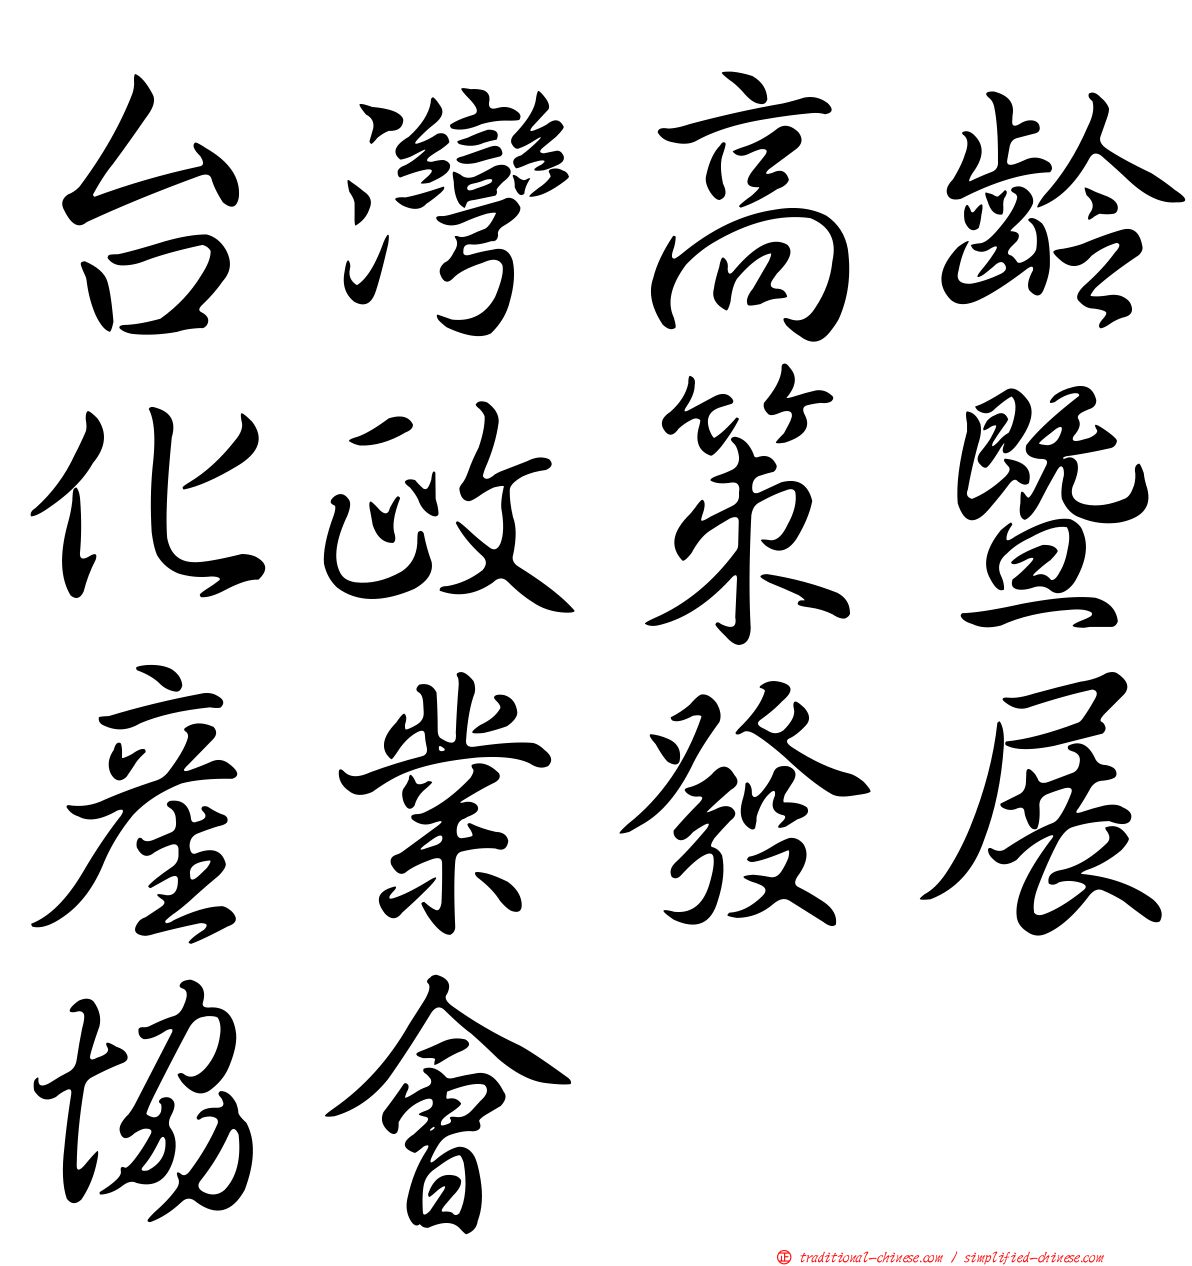 台灣高齡
化政策暨
產業發展
協會
正 traditional-chinese.com / simplified-chinese.com